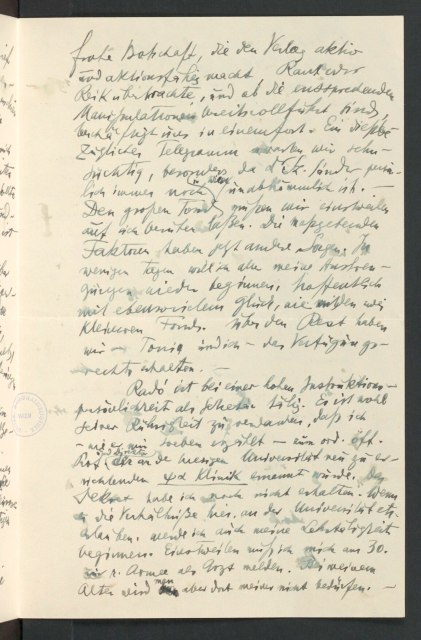 frohe Botschaft, die den Verlag aktiv
und aktionsfähig macht. Rank oder
Reik überbrachte, und ob die entsprechenden
Manipulationen bereits vollführt sind,
beschäftigt uns in einem fort. Ein diesbe-
zügliches Telegramm erwarten wir sehn-
süchtig, besonders da d. Gz. Sánder
immer noch unabkömmlich ist. —
Den großen Fond müssen wir einstweilen
auf sich beruhen laßen. Die maßgebenden
Faktoren haben jetzt andere Sorgen. In
wenigen Tagen will ich aber meine Anstren-
gungen wieder beginnen, hoffentlich
mit ebensovielem Glück, wie mit dem
kleineren Fonds. Über den Rest haben
wir — Toni und ich — das Verfügungs-
recht erhalten. —
Radó ist bei einer hohen Instruktions-
persönlichkeit als Sekretär tätig. Es ist wohl
seiner Rührigkeit zu verdanken, daß ich
— wie er mir soeben erzählt — zum ord. öff.
Prof. und Direktor der an der hiesigen Universität neu zu er-
richtenden ψα Klinik ernannt wurde. Das
Dekret habe ich noch nicht erhalten. Wenn
es die Verhältniße hier, an der Universität etc.
erlauben, werde ich auch meine Lehrtätigkeit
beginnen. Einstweilen muß ich mich am 30.
zur r. Armee als Arzt melden. Bei meinem
Alter wird man aber dort meiner nicht bedürfen. —